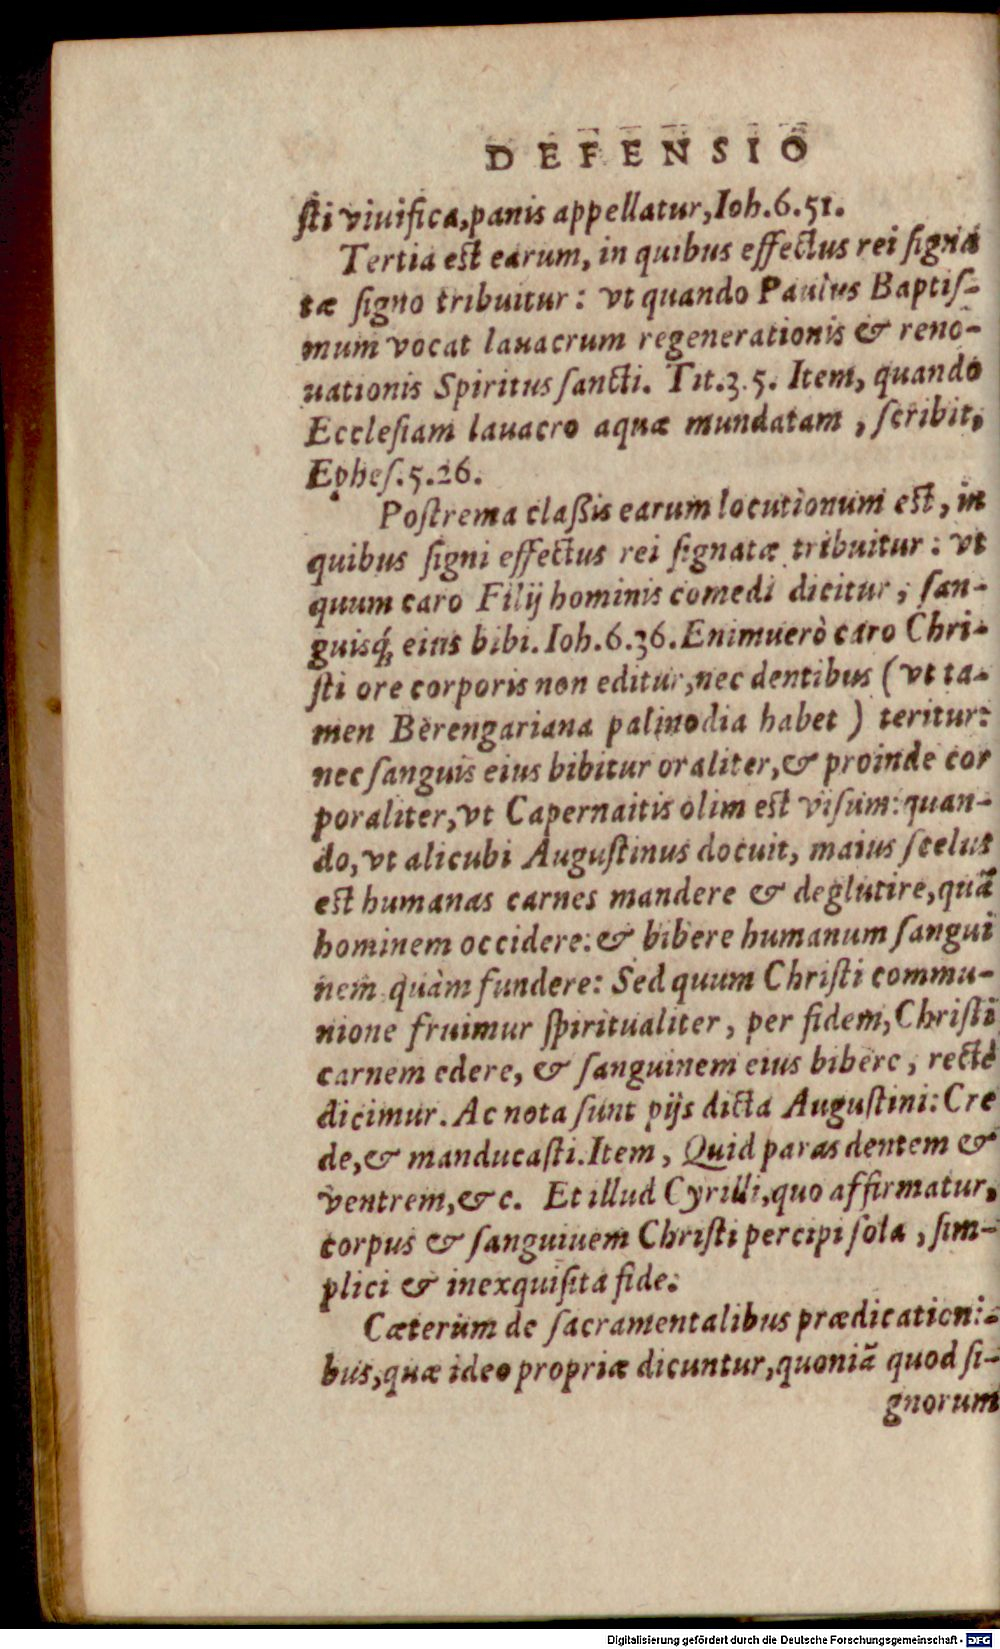 DEFENSIO
ſti viuifica, panis appellatur, Ioh. 6. 51.
Tertia est earum, in quibus effectus rei ſigna
tæ ſigno tribuitur: vt quando Paulus Baptiſ-
mum vocat lauacrum regenerationis & reno-
uationis Spiritus ſancti. Tit. 3. 5. Item, quando
Eccleſiam lauacro aquæ mundatam, ſcribit,
Epheſ. 5. 26.
Poſtrema claßis earum locutionum est, in
quibus ſigni effectus rei ſignatæ tribuitur: vt
quum caro Filij hominis comedi dicitur, ſan-
guisq́; eius bibi. Ioh. 6. 36. Enimuerò caro Chri-
ſti ore corporis non editur, nec dentibus (vt ta-
men Berengariana palinodia habet) teritur:
nec ſanguis eius bibitur oraliter, & proinde cor
poraliter, vt Capernaitis olim est viſum: quan-
do, vt alicubi Auguſtinus docuit, maius ſcelus
est humanas carnes mandere & deglutire, quã
hominem occidere: & bibere humanum ſangui
nem quàm fundere: Sed quum Chriſti commu-
nione fruimur ſpiritualiter, per fidem, Chriſti
carnem edere, & ſanguinem eius bibere, rectè
dicimur. Ac nota ſunt pijs dicta Auguſtini: Cre
de, & manducaſti. Item, Quid paras dentem &
ventrem, &c. Et illud Cyrilli, quo affirmatur,
corpus & ſanguiuem Chriſti percipi ſola, ſim-
plici & inexquiſita fide.
Cæterùm de ſacramentalibus prædicationi-
bus, quæ ideo propriæ dicuntur, quoniã quod ſi-
gnorum
Digitalisierung gefördert durch die Deutsche Forschungsgemeinschaft - DFG